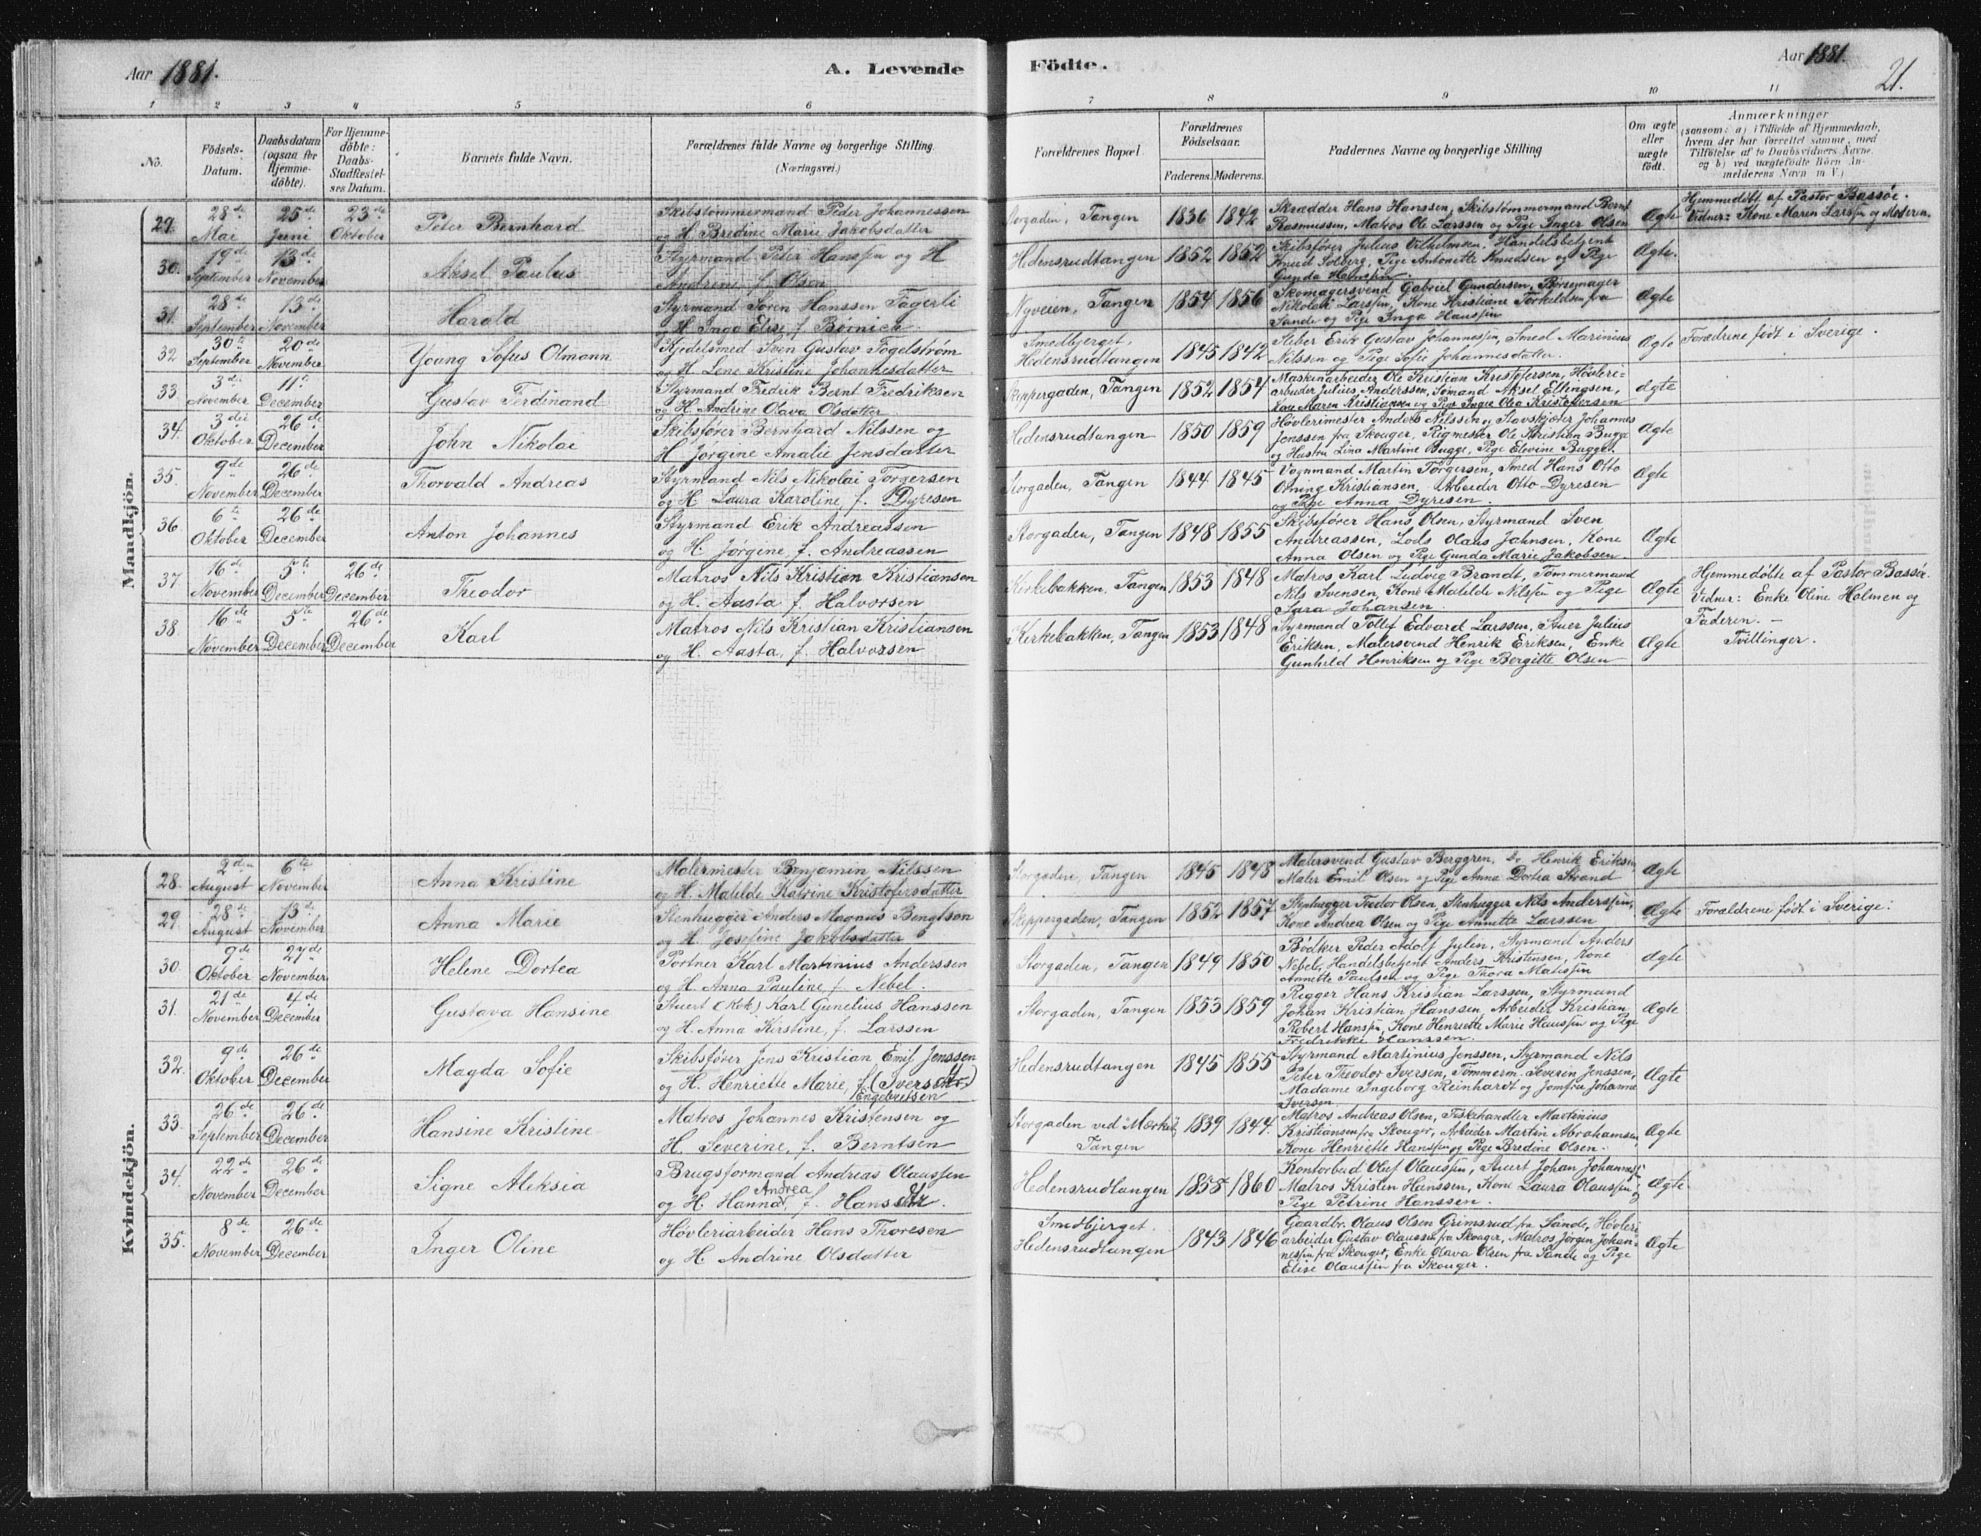 Aar 1881. A. Levende Födte. Aar 1881. 21.
1 2 3 4 5 6 7 8 9 10 11
No.
Födsels-Datum.
Daabsdatum (ogsaa for Hjemme-döbte).
For Hjemme-döbte: Daabs-Stadfæstel-ses Datum.
Barnets fulde Navn.
Forældrenes fulde Navne og borgerlige Stilling. (Næringsvei.)
Forældrenes Bopæl.
Forældrenes Födselsaar.
Faderens. Moderens.
Faddernes Navne og borgerlige Stilling
Om ægte eller uægte födt.
Anmærkninger
(saasom: a) i Tilfælde af Hjemmedaab,
hvem der har forrettet samme, med
Tilföielse af to Daabsvidners Navne.
og b) ved uægtefödte Börn An-
melderens Navn m. V.)
Mandkjön.
29. 28de Mai 25de Juni 23de Oktober Peter Bernhard
Skibstømmermand Peder Johannessen
og H. Bredine Marie Jakobsdatter
Storgaden, Tangen 1836 1842
Skrædder Hans Hanssen, Skibstømmermand Bernt
Rasmussen, Matros Ole Larssen og Pige Inger Olsen
Ægte
Hjemmedöbt af Pastor Bassøe.
Vidner: Kone Maren Larssen og Moderen.
30. 19de September 13de November Aksel Paulus
Styrmand Peter Hanssen og H
Andrine f. Olsen
Hedensrudtangen 1852 1852
Skibsfører Julius Vilhelmsen, Handelsbetjent
Knud Solberg, Pige Antonette Knudsen og Pige
Gunda Hanssen
Ægte.
31. 28de September 13de November Harald
Styrmand Søren Hanssen Fagerli
og H. Inga Elise f. Bernica
Nyveien, Tangen 1854 1856
Skomagersvend Gabriel Gundersen, Børsemager
Nikolai Larssen, Kone Kristiane Torkildsen fra
Sande og Pige Inga Hanssen
Ægte
32 30te September 20de November Young Sofus Olmann
Kjedelsmed Sven Gustav Fogelstrøm
og H. Lene Kristine Johannesdatter
Smedbjerget, Hedensrudtangen 1845 1842
Støber Erik Gustav Johannessen, Smed Marinius
Nilssen og Pige Sofie Johannesdatter.
Ægte
Forældrene født i Sverige.
33. 3die November 11te December Gustav Ferdinand
Styrmand Fredrik Bernt Fredriksen
og H. Andrine Olava Olsdatter
Skippergaden, Tangen 1852 1854
Maskinarbeider Ole Kristian Kristofersen, Høvleri=
arbeider Julius Anderssen, Sømand Aksel Ellingsen,
Kone Maren Kristiansen og Pige Inger Olea Kristofersen
Ægte
34. 3die Oktober 26de December John Nikolai
Skibsfører Bernhard Nilssen og
H. Jørgine Amalie Jensdatter
Hedensrudtangen 1850 1859
Høvlerimester Anders Nilssen og Stavskjører Johannes
Jenssen fra Skouger, Rigmester Ole Kristian Bugge
og Hustru Lina Martine Bugge, Pige Elevine Bugge.
Ægte
35. 9de November 26de December Thorvald Andreas
Styrmand Nils Nikolai Torgersen
og H. Laura Karoline, f. Dyresen
Storgaden, Tangen 1844 1845
Vognmand Martin Torgersen, Smed Hans Otto
Orning Kristiansen, Arbeider Otto Dyresen
og Pige Anna Dyresen.
Ægte
36 6te Oktober 26de December Anton Johannes
Styrmand Erik Andreassen
og H. Jørgine, f. Andreassen
Storgaden, Tangen 1848 1855
Skibsfører Hans Olsen, Styrmand Sven
Andreassen, Lods Olaus Jahnsen, Kone
Anna Olsen og Pige Gunda Marie Jakobsen.
Ægte
37. 16de November 5te December 26de December Theodor
Matros Nils Kristian Kristiansen
og H. Aasta f. Halvorsen
Kirkebakken, Tangen 1853 1848
Matros Karl Ludvig Brandt, Tømmermand
Nils Svensen, Kone Matilde Nilssen og Pige
Sara Johansen.
Ægte
Hjemmedöbte af Pastor Bassøe.
Vidner: Enke Oline Holmen og
Faderen. —
38. 16de November 5te December 26de December Karl
Matros Nils Kristian Kristiansen
og H. Aasta, f. Halvorsen
Kirkebakken, Tangen 1853 1848
Styrmand Tollef Edvard Larssen, Stuer Julius
Eriksen, Malersvend Henrik Eriksen, Enke
Gunhild Henriksen og Pige Bergitte Olsen
Ægte
Tvillinger.
Kvindekjön.
28. 2den August 6te November Anna Kristine
Malermester Benjamin Nilssen
og H. Matilde Katrine Kristofersdatter
Storgaden, Tangen 1845 1848
Malersvend Gustav Berggren, Do Henrik Eriksen
Maler Emil Olsen og Pige Anna Dortea Strand
Ægte
29. 28de August 13de November Anna Marie
Stenhugger Anders Magnus Bengtson
og H. Josefine Jakobsdatter
Skippergaden, Tangen 1852 1857
Stenhugger Fredor Olsen, Stenhugger Nils Anderssen,
Kone Andrea Olsen og Pige Annette Larssen
Ægte
Forældrene født i Sverige.
30. 9de Oktober 27de November Helene Dortea
Portner Karl Martinius Anderssen
og H. Anna Pauline, f. Nebel.
Storgaden, Tangen 1849 1850
Bødker Peder Adolf Julen, Styrmand Anders
Nebel, Handelsbetjent Anders Kristensen, Kone
Annette Paulsen og Pige Thora Matissen
Ægte
31. 21de November 4de December Gustava Hansine
Stuert (Kok) Karl Gunelius Hanssen
og H. Anna Kirstine, f. Larssen
Storgaden, Tangen 1853 1859
Rigger Hans Kristian Larssen, Styrmand
Johan Kristian Hanssen, Arbeider Kristian
Robert Hanssen, Kone Henriette Marie Haussen og Pige
Fredrikke Hanssen.
Ægte
32. 9de Oktober 26de December Magda Sofie
Skibsfører Jens Kristian Emil Jenssen
og H. Henriette Marie, f. (Iversen)
Engebretsen
Hedensrudtangen 1845 1855
Styrmand Martinius Jenssen, Styrmand Nils
Peter Theodor Iversen, Tømmerm. Severin Jenssen,
Madame Ingeborg Reinhardt og Jomfru Johanne
Iversen
Ægte
33. 26de September 26de December Hansine Kristine
Matros Johannes Kristensen og
H. Severine, f. Berntsen
Storgaden ved Mærket, Tangen 1839 1844.
Matros Andreas Olsen, Fiskehandler Martinius
Kristiansen fra Skouger, Arbeider Martin Abrahamsen,
Kone Henriette Hanssen og Pige Bredine Olsen.
Ægte
34. 22de November 26de December Signe Aleksia
Brugsformand Andreas Olaussen
og H. Hanna Andrea, f. Hanssen.
Hedensrudtangen 1855 1860
Kontorbud Oluf Olaussen, Stuert Johan Johannes=
Matros Kristen Hanssen, Kone Laura Olaussen og
Pige Petrine Hanssen.
Ægte.
35. 8de November 26de December Inger Oline
Høvleriarbeider Hans Thoresen
og H. Andrine Olsdatter
Smedbjerget. Hedensrudtangen 1843 1846
Gaardbr. Olaus Olsen Grimsrud fra Sande, Høvleri
arbeider Gustav Olaussen fra Skouger, Matros Jørgen Johan=
nessen fra Skouger, Enke Olava Olsen fra Sande og Pige
Elise Olaussen fra Skouger.
Ægte